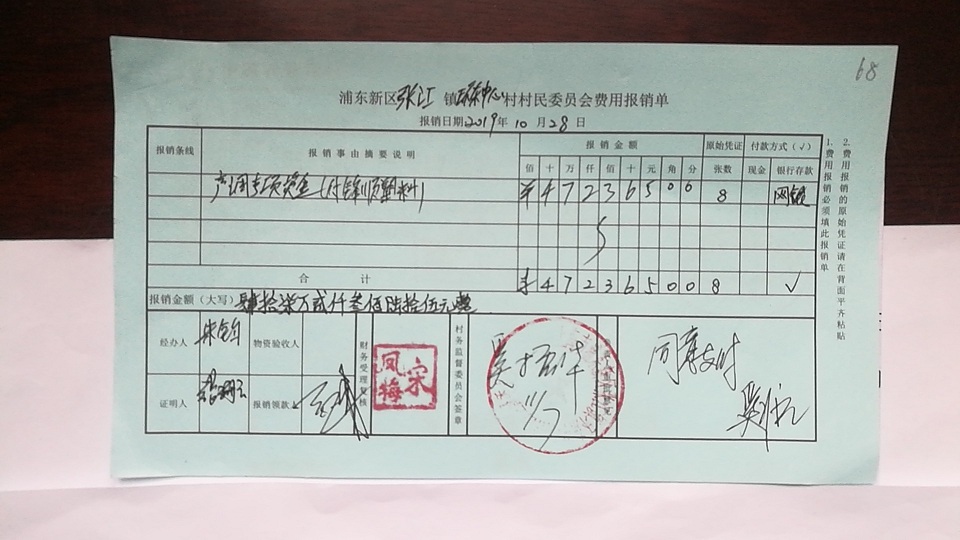 68
浦东新区张江镇环东中心村村民委员会费用报销单
报销日期2019年10月28日
报销条线 报销事由摘要说明 报销金额 原始凭证 付款方式（√）
佰 十 万 仟 佰 十 元 角 分 张数 现金 银行存款
¥ 4 7 2 3 6 5 0 0 8 网银
合计 ¥ 4 7 2 3 6 5 0 0 8 √
报销金额（大写）肆拾柒万贰仟叁佰陆拾伍元整
经办人 物资验收人 财务受理复核 村务监督委员会签章 同意支付
宋凤梅
证明人 报销领款人
11/7
1.费用报销必须填此报销单
2.费用报销的原始凭证请在背面平齐粘贴